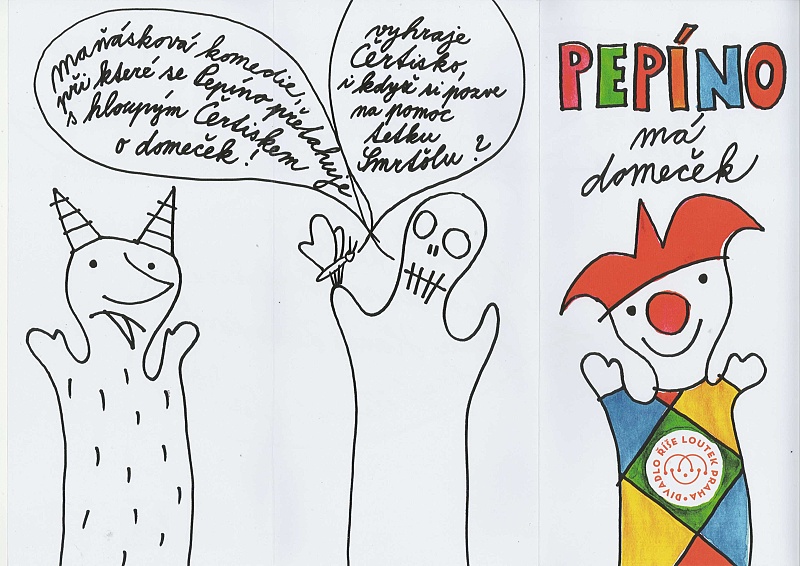 maňásková komedie,
při které se Pepíno přetahuje
s hloupým Čertiskem
o domeček!
vyhraje
Čertisko,
i když si pozve
na pomoc
tetku
Smrtólu?
PEPÍNO
má
domeček
DIVADLO ŘÍŠE LOUTEK PRAHA